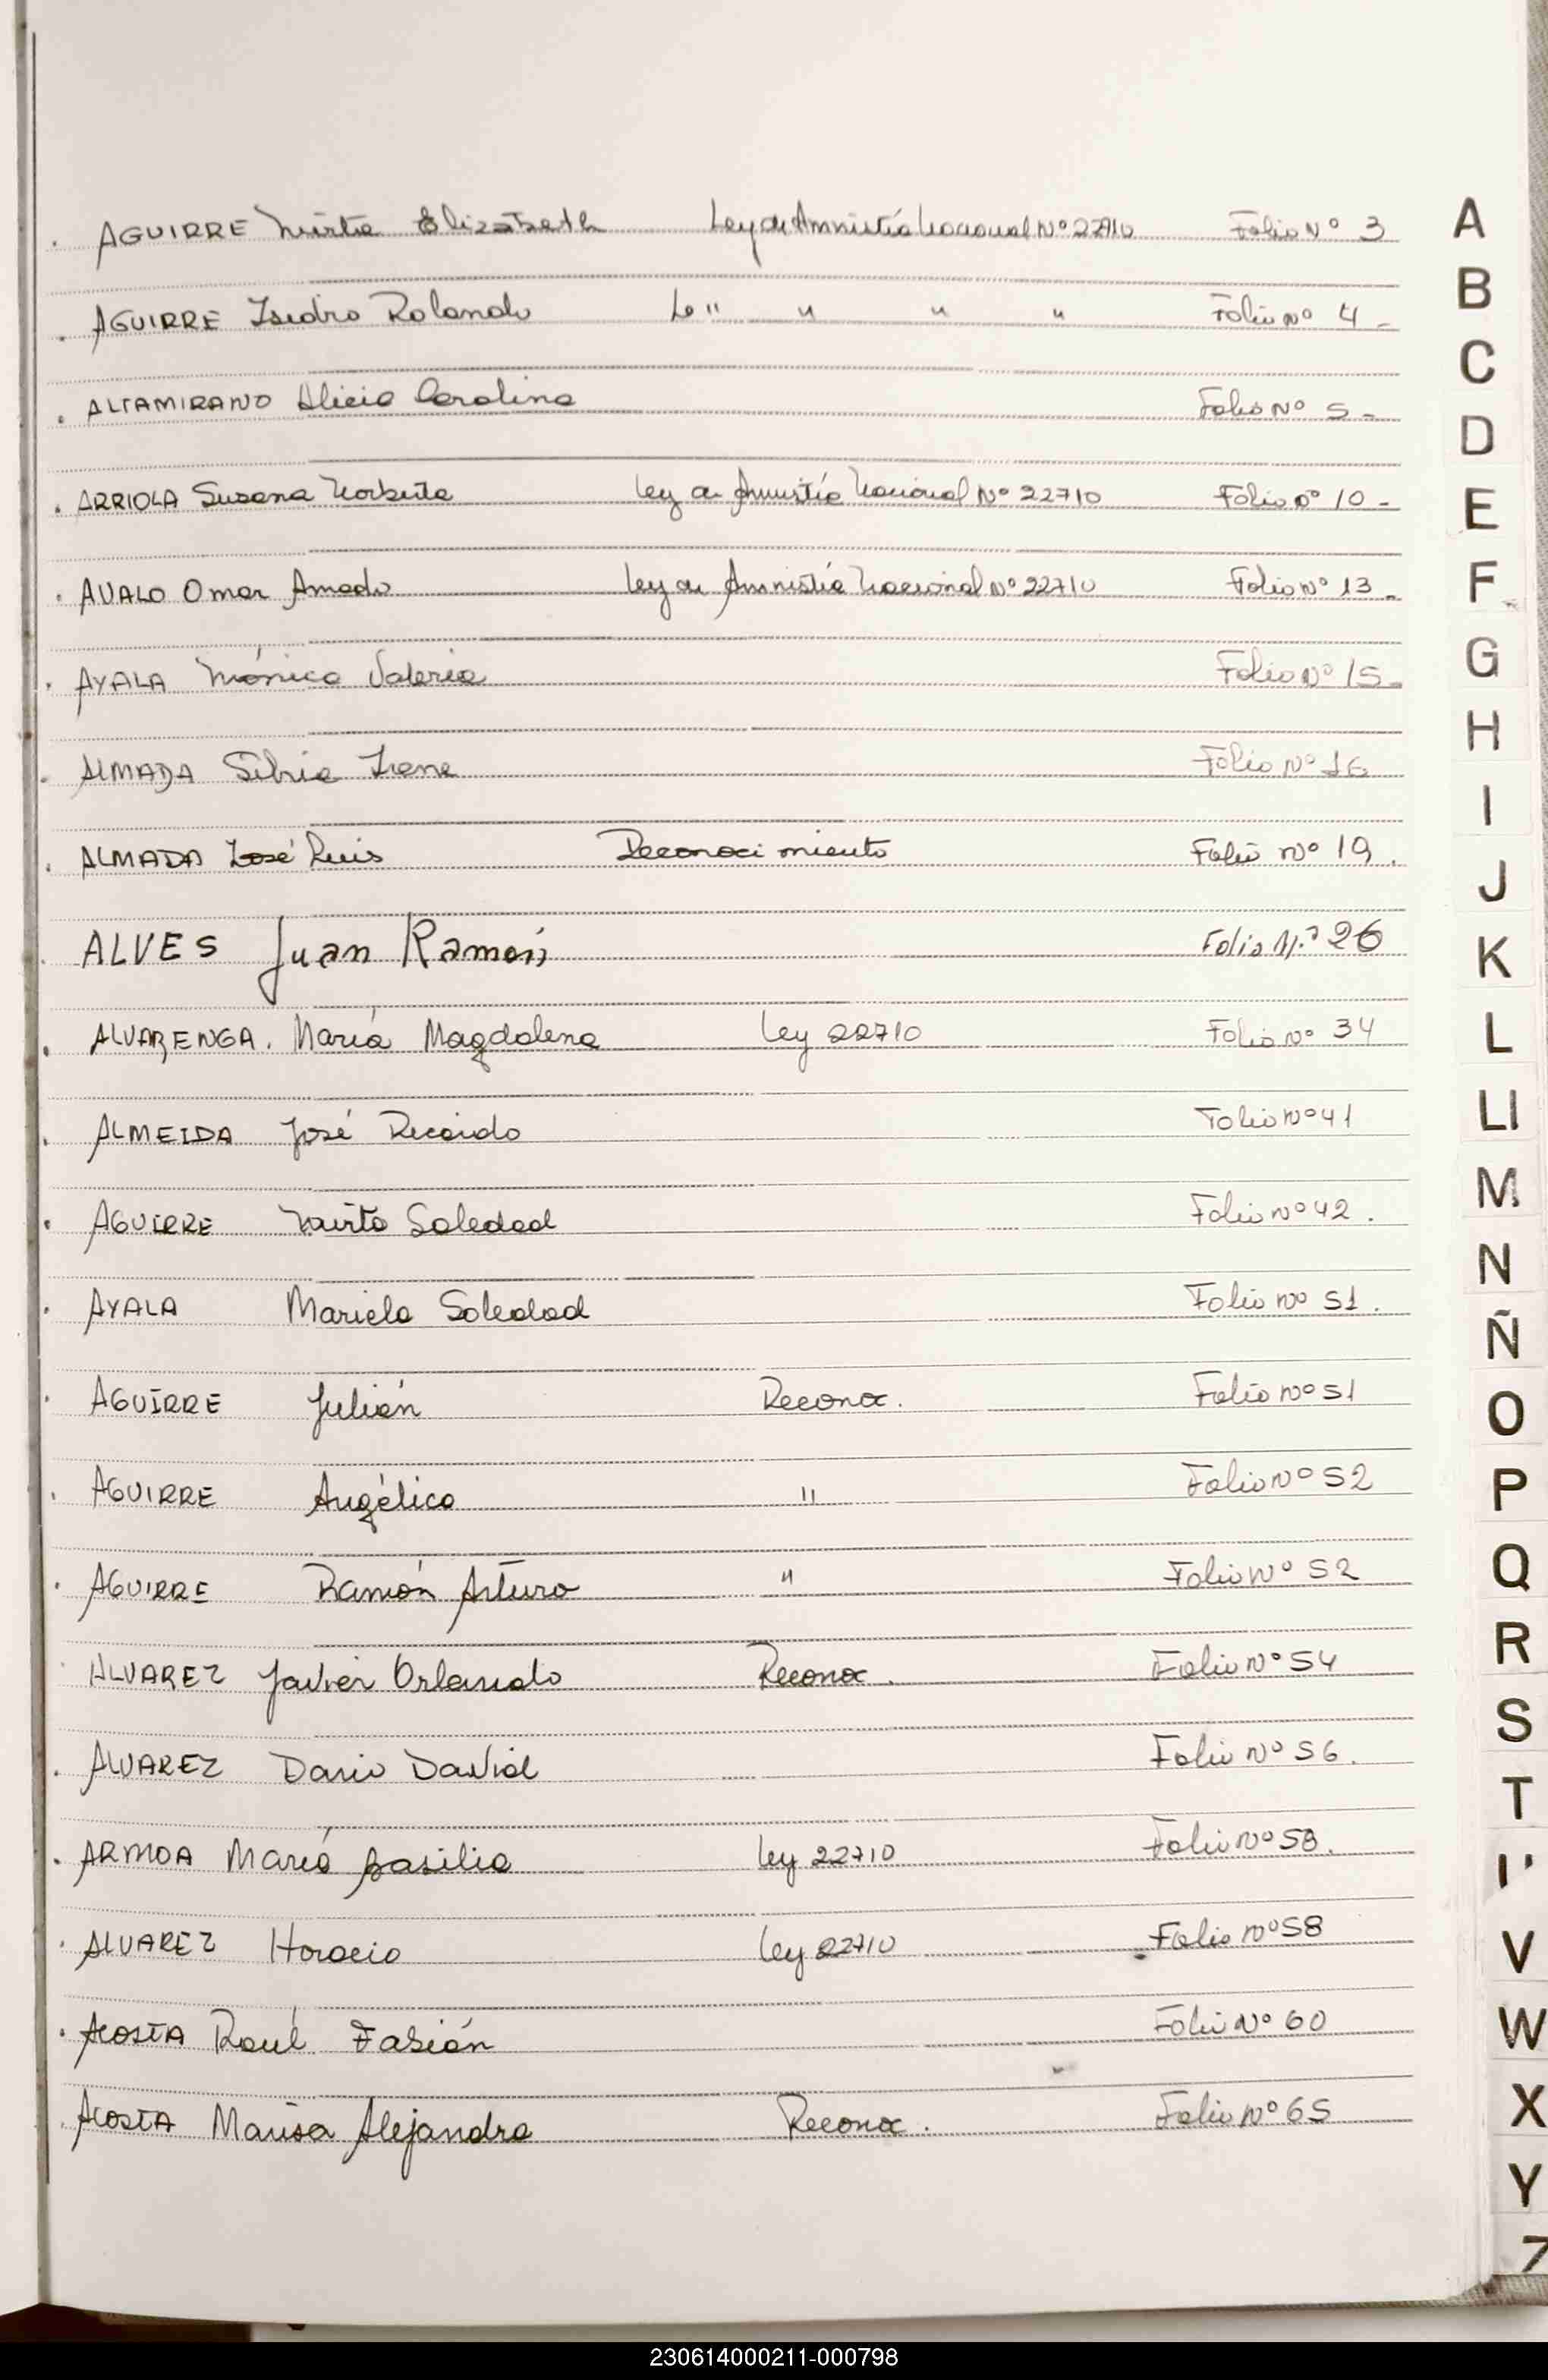 . AGUIRRE Mirta Elizabeth Ley de Amnistía Nacional Nº 22710 Folio Nº 3
. AGUIRRE Isidro Rolando Le " " " " Folio nº 4 -
. ALTAMIRANO Alicia Carolina Folio Nº 5 -
. ARRIOLA Susana Norberta Ley de Amnistía Nacional Nº 22710 Folio nº 10 -
. AVALO Omar Amado Ley de Amnistía Nacional Nº 22710 Folio Nº 13 -
. AYALA Mónica Valeria Folio Nº 15 -
. ALMADA Silvia Irene Folio Nº 16
. ALMADA José Luis Reconocimiento Folio nº 19 .
. ALVES Juan Ramón Folio N.º 26
. ALVARENGA . María Magdalena Ley 22710 Folio Nº 34
. ALMEIDA José Ricardo Folio Nº 41
. AGUIRRE Mirta Soledad Folio nº 42 .
. AYALA Mariela Soledad Folio nº 51 .
. AGUIRRE Julián Reconoc. Folio nº 51
. AGUIRRE Angélica " Folio Nº 52
. AGUIRRE Ramón Arturo " Folio Nº 52
. ALVAREZ Javier Orlando Reconoc . Folio Nº 54
. ALVAREZ Dario David Folio Nº 56 .
. ARMOA María Basilia Ley 22710 Folio nº 58 .
. ALVAREZ Horacio Ley 22710 Folio nº 58
. ACOSTA Raúl Fabián Folio Nº 60
. ACOSTA Marisa Alejandra Reconoc . Folio Nº 65
A
B
C
D
E
F
G
H
I
J
K
L
Ll
M
N
Ñ
O
P
Q
R
S
T
V
W
X
Y
Z
230614000211-000798